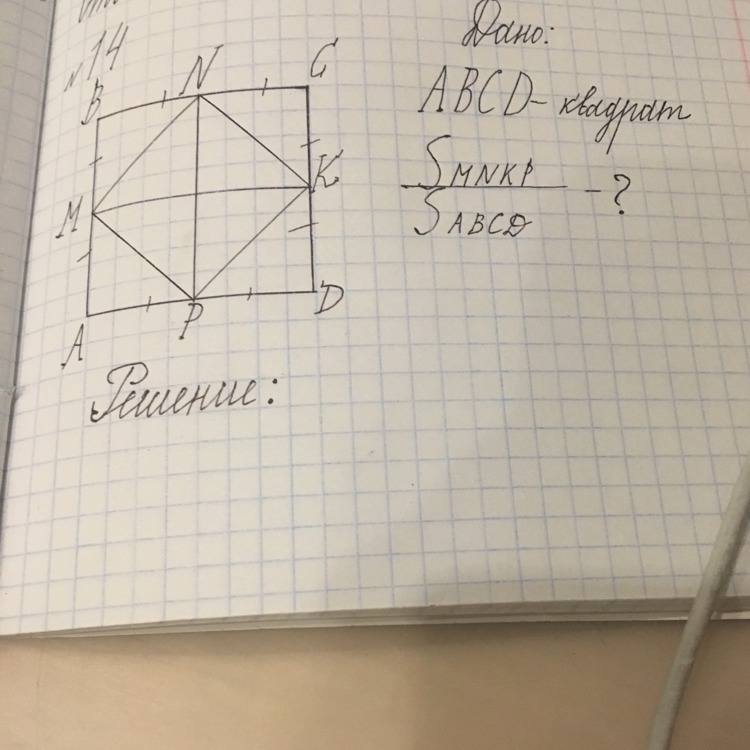 №14
N
C
B
K
M
A
P
D
Дано:
ABCD - квадрат
SMNKP
SABCD
- ?
Решение: